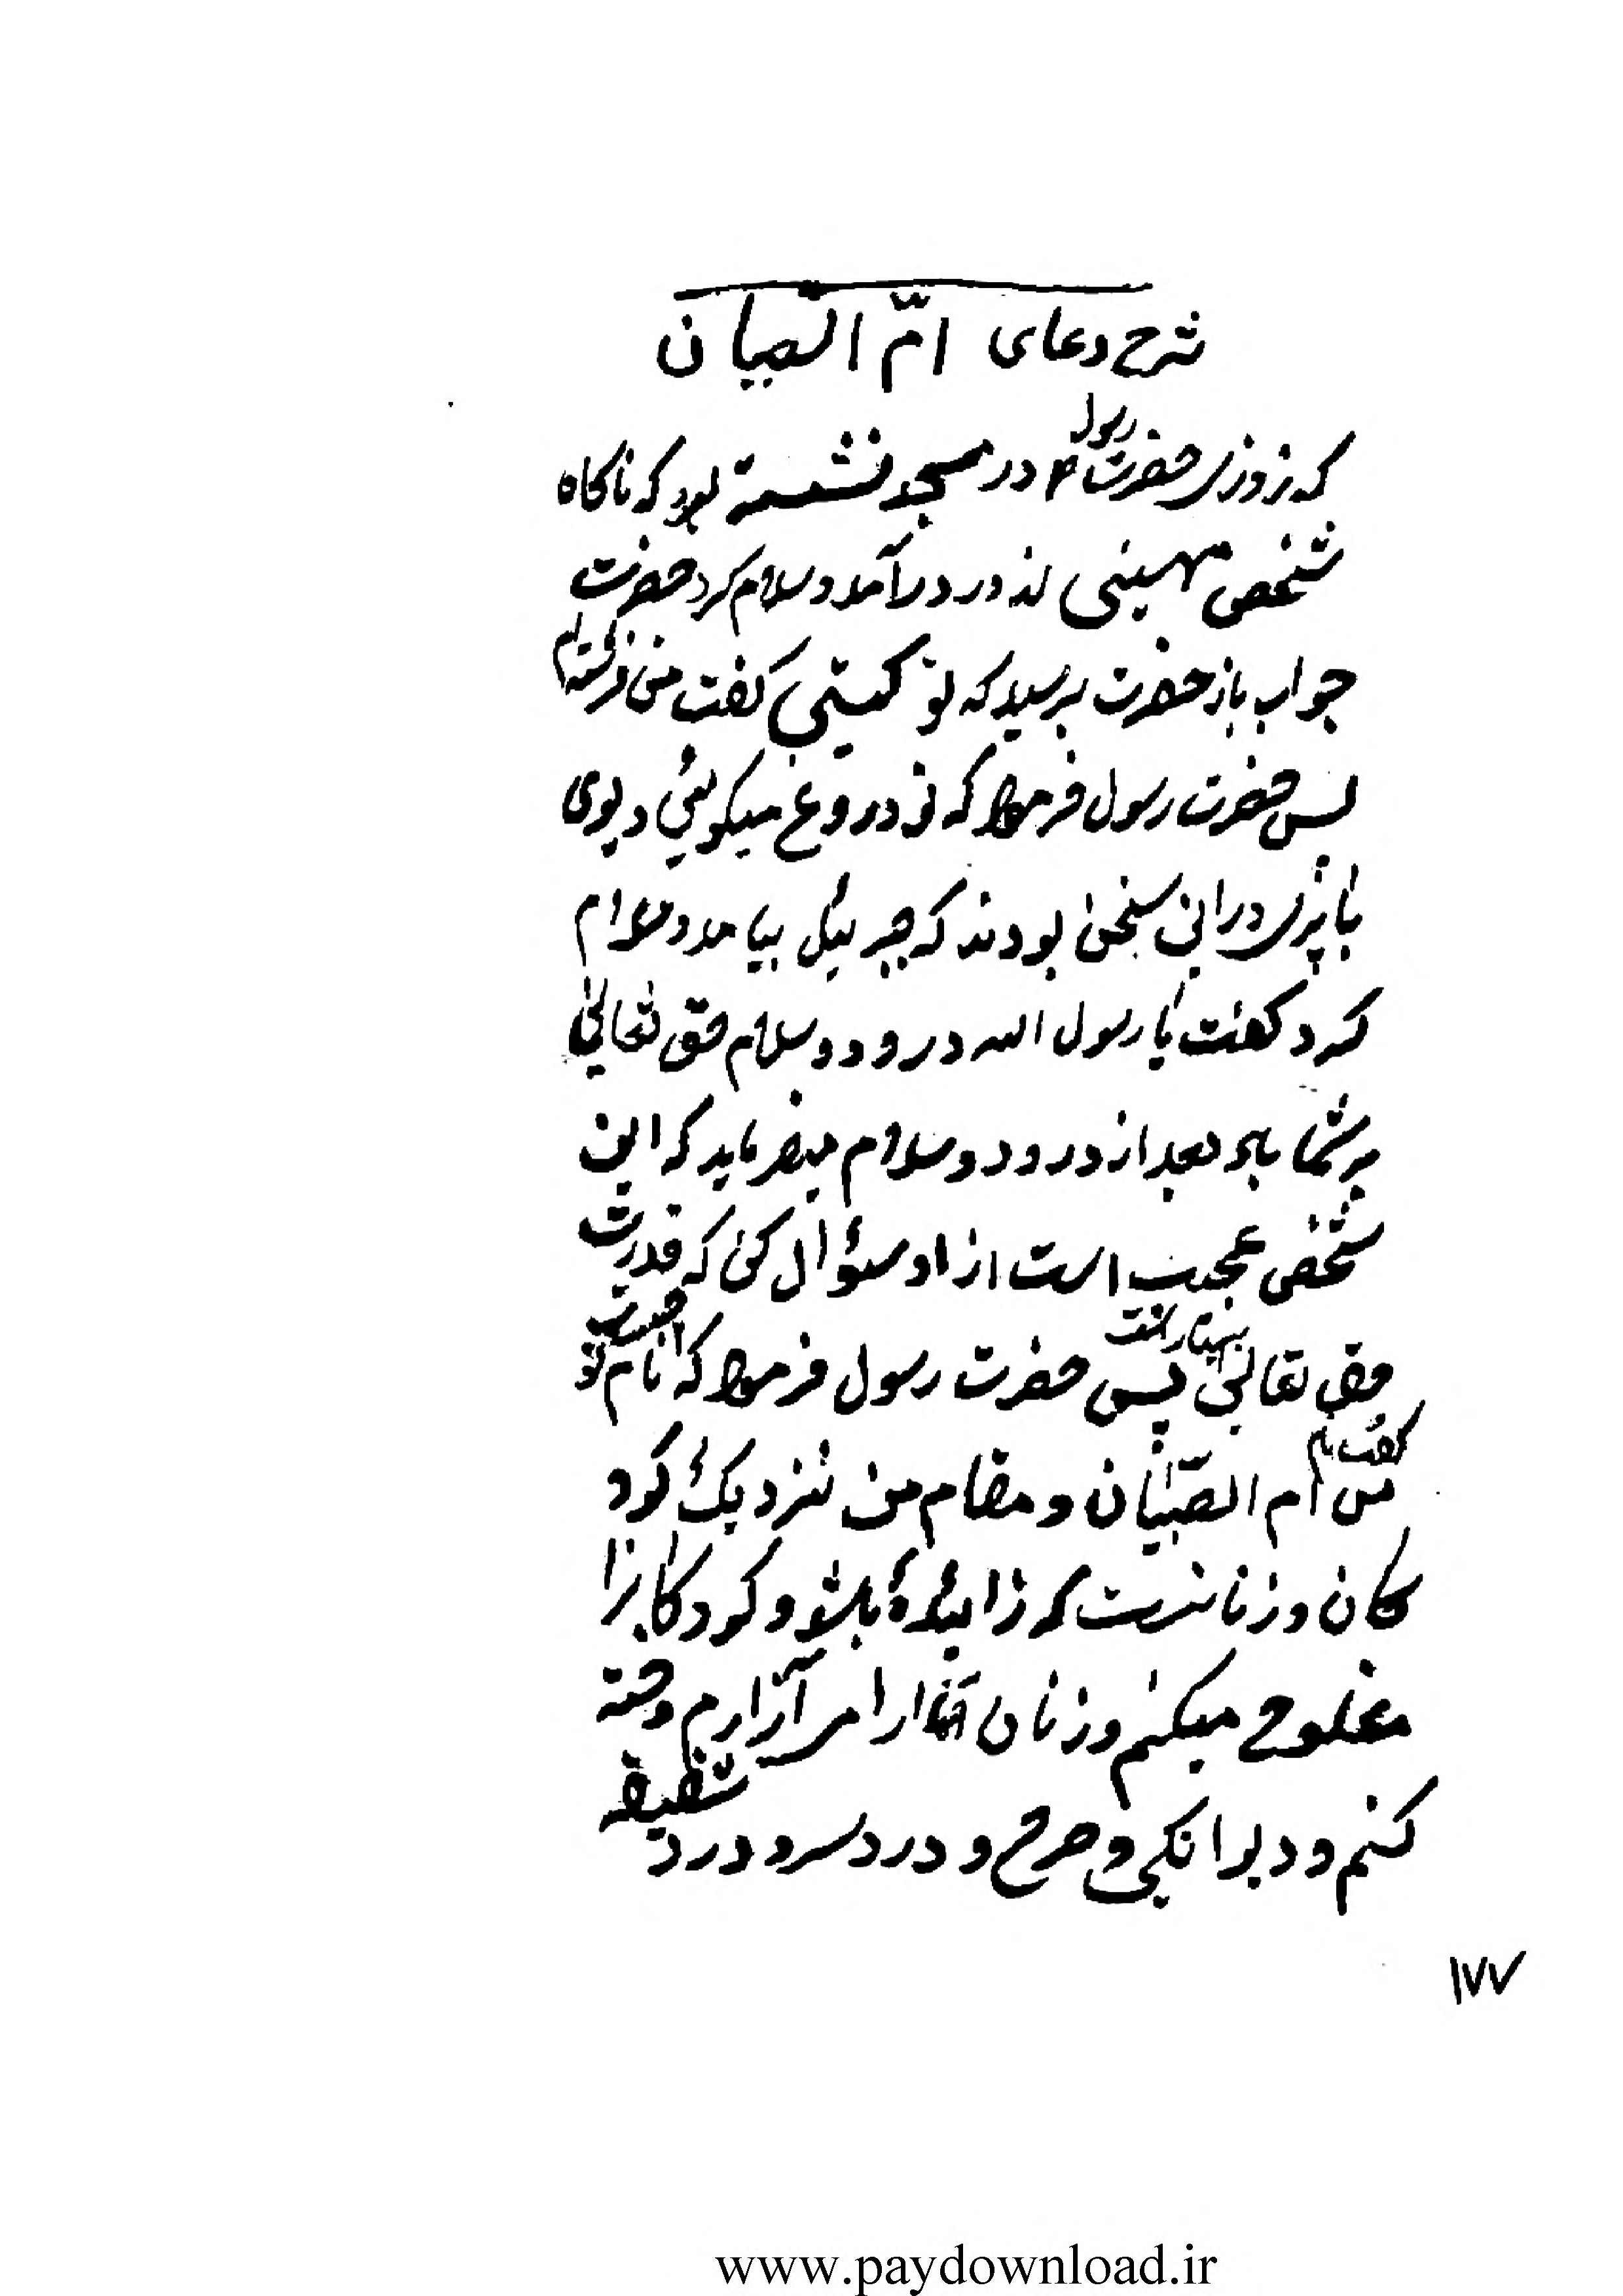 شرح دعای امّ الصّبیان
که روزی حضرت رسول ص در مسجد نشسته بود که ناکاه
شخص مهیبی از در درآمد و سلام کرد حضرت
جواب باز حضرت پرسید که تو کیستی کفت من فرشته ام
پس حضرت رسول فرمود که تو دروغ میکوئی دیوی
یا پری در این سخن بودند که جبرئیل بیامد و سلام
کرد کفت یا رسول الله درود و سلام حق تعالی
بر شما باد بعد از درود و سلام میفرماید که این
شخص عجیب است از او سئوال کن که قدرت
حق تعالی پس حضرت رسول فرمود که نام تو چیست
کفت نام من ام الصّبیان و مقام من نزدیک کود
کان و زنانست که زائیده باشد و کودکانرا
مفلوج میکنم و زنان را آزارم و خسته
کنم و دیوانکی و صرع و درد سر و درد شقیقه
۱۷۷
www.paydownload.ir